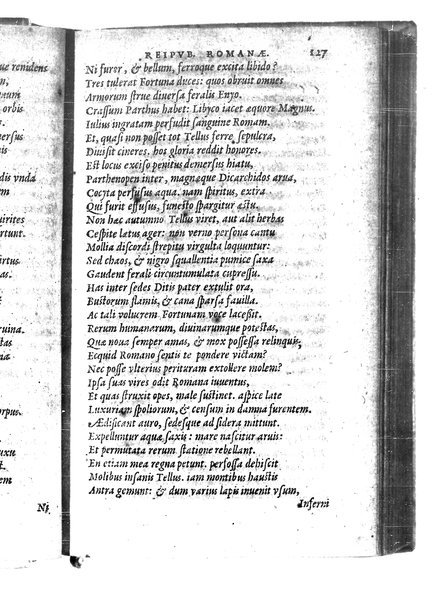 ue renidens
orbis
ersus
dis vnda
uirites
rtunt.
irtus
uina.
orpus.
Ni
REIPVB. ROMANÆ. 127
Ni furor, & bellum, ferroque excita libido?
Tres tulerat Fortuna duces: quos obruit omnes
Armorum strue diuersa feralis Enyo.
Crassum Parthus habet: Libyco iacet æquore Magnus.
Iulius ingratam perfudit sanguine Romam.
Et, quasi non posset tot Tellus ferre sepulcra,
Diuisit cineres. hos gloria reddit honores.
Est locus exciso penitus demersus hiatu,
Parthenopen inter, magnæque Dicarchidos arua,
Cocyta perfusus aqua. nam spiritus, extra
Qui furit effusus, funesto spargitur æstu.
Non hæc autumno Tellus viret, aut alit herbas
Cespite lætus ager: non verno persona cantu
Mollia discordi strepitu virgulta loquuntur:
Sed chaos, & nigro squallentia pumice saxa
Gaudent ferali circuntumulata cupressu.
Has inter sedes Ditis pater extulit ora,
Bustorum flāmis, & cana sparsa fauilla.
Ac tali volucrem Fortunam voce lacessit.
Rerum humanarum, diuinarumque potestas,
Quæ noua semper amas, & mox possessa relinquis,
Ecquid Romano sentis te pondere victam?
Nec posse vlterius perituram extollere molem?
Ipsa suas vires odit Romana iuuentus,
Et quas struxit opes, male sustinet. aspice late
Luxuriam spoliorum, & censum in damna furentem.
Ædificant auro, sedesque ad sidera mittunt.
Expelluntur aquæ saxis: mare nascitur aruis:
Et permutata rerum statione rebellant.
En etiam mea regna petunt. perfossa dehiscit
Molibus insanis Tellus. iam montibus haustis
Antra gemunt: & dum varius lapis inuenit vsum,
Inferni